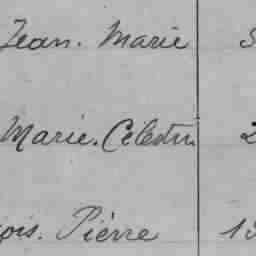 Jean. Marie
Marie. Célestin
ois. Pièrre